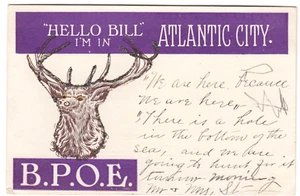 "HELLO BILL"
I'M IN
ATLANTIC CITY.
"We are here, because
we are here,
"There is a hole
in the bottom of the
sea, and we are
going to hunt for it
morning
Mr & Mrs.
B.P.O.E.